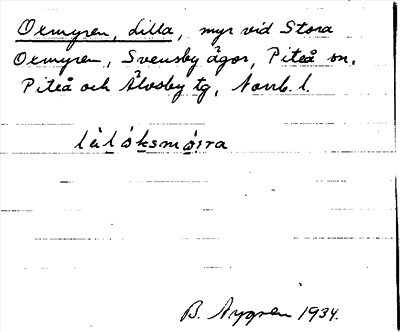 Oxmyren, Lilla, myr vid Stora
Oxmyren, Svensby ägor, Piteå sn,
Piteå och Älvsby tg, Norrb. l.
B. Nygren 1934.